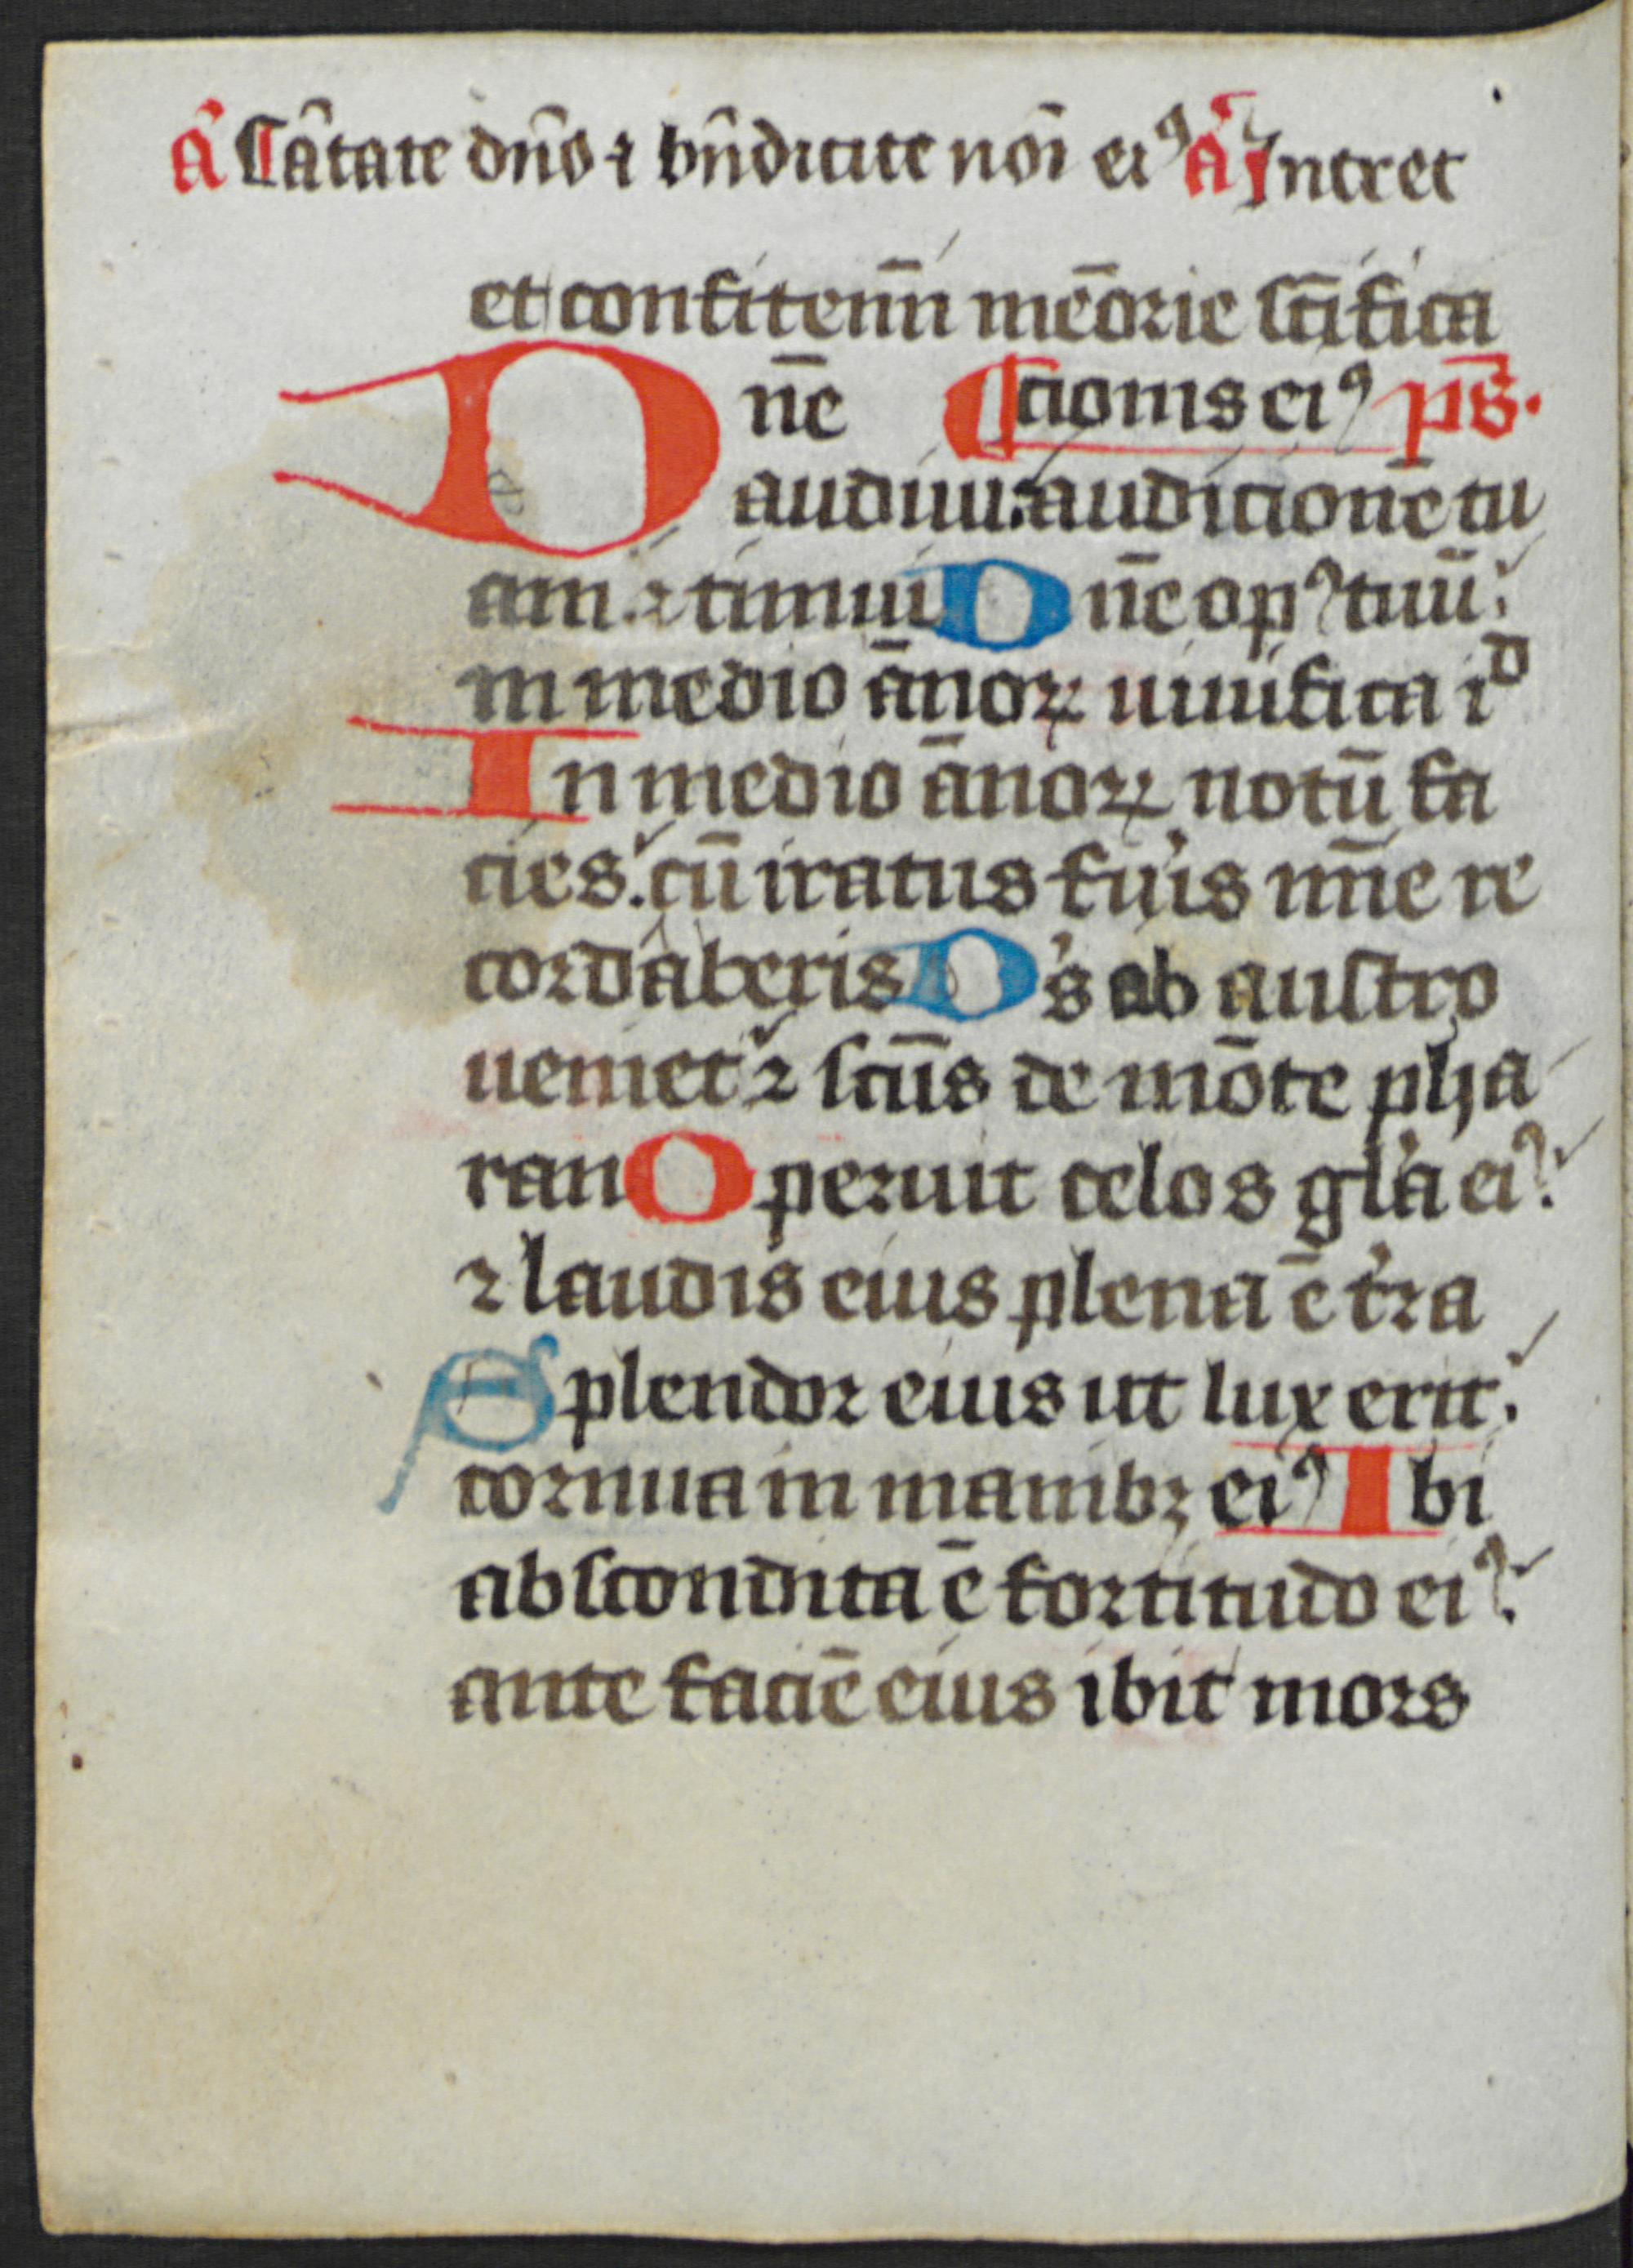 a̅ Ca̅tate dn̅o ⁊ bn̅dicite no̅i eiꝰ a̅ Intret
et confitem̅i me̅orie sc̅ifica
Dn̅e ¶ cionis eiꝰ ps̅.
audiui audicione̅ tu
am ⁊ timui Dn̅e opꝰ tuu̅
in medio a̅noꝝ uiuifica iᵈ
In medio a̅noꝝ notu̅ fa
cies. cu̅ iratus fu̓is mi̅e re
cordaberis D̓s ab austro
ueniet ⁊ sc̅us de mo̅te pha
ran Operuit celos gl̓a eiꝰ.
⁊ laudis eius plena e̅ t̓ra
Splendor eius ut lux erit.
cornua in manibꝫ eiꝰ Ibi
abscondita e̅ fortitudo eiꝰ.
ante facie̅ eius ibit mors